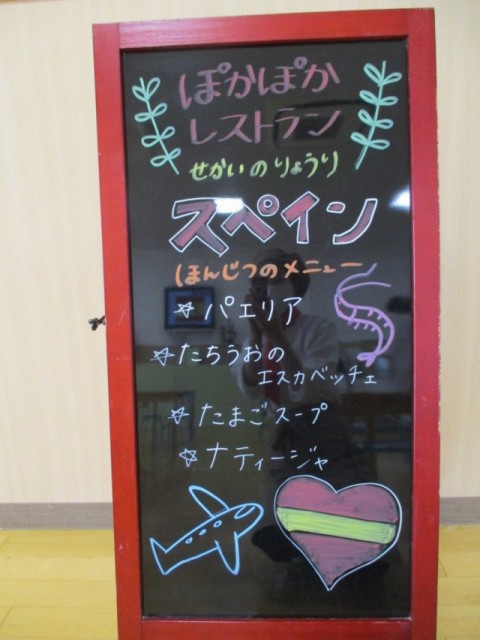 ぽかぽか
レストラン
せかいのりょうり
スペイン
ほんじつのメニュー
☆パエリア
☆たちうおの
エスカベッチェ
☆たまごスープ
☆ナティージャ